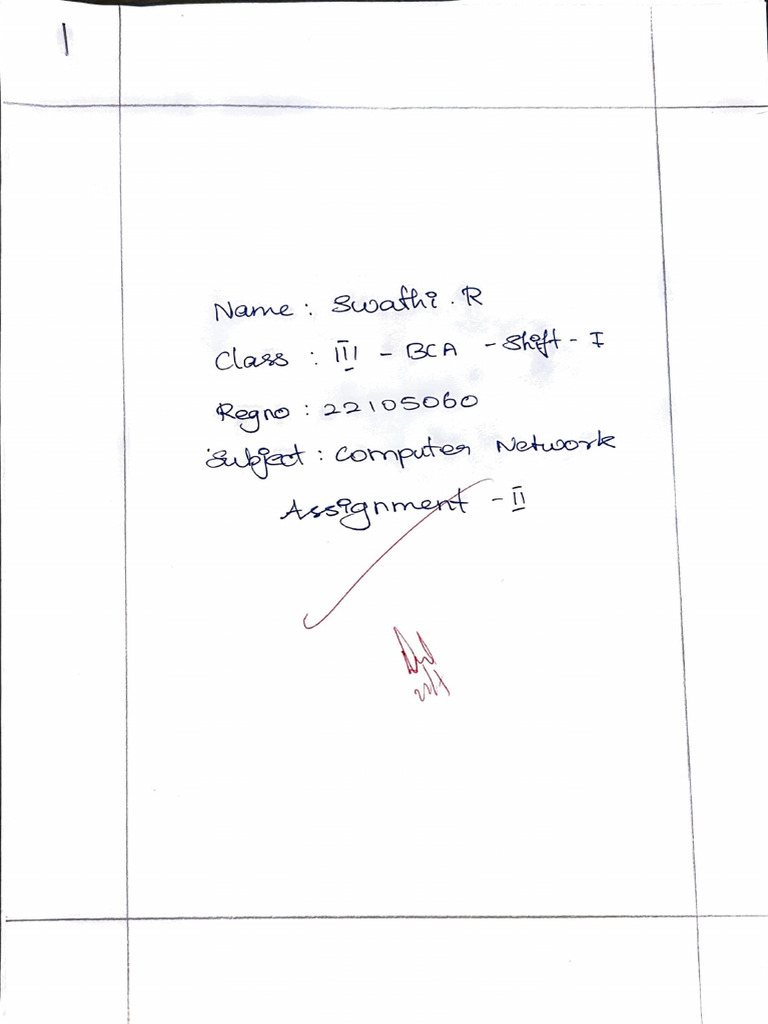 1
Name : Swathi . R
Class : III - BCA - Shift - I
Regno : 22105060
Subject : Computer Network
Assignment - II